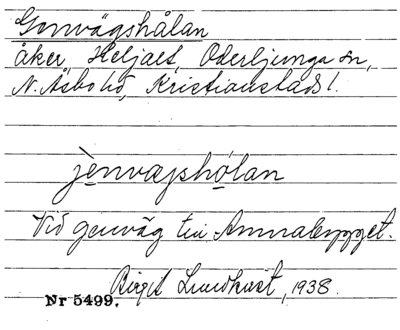 Genvägshålan
åker, Heljalt, Oderljunga sn,
N. Åsbo hd, Kristianstads l.
jenvæʃshólan
Vid genväg till Annalsbygget.
Birgit Lundkvist, 1938.
Nr 5499.